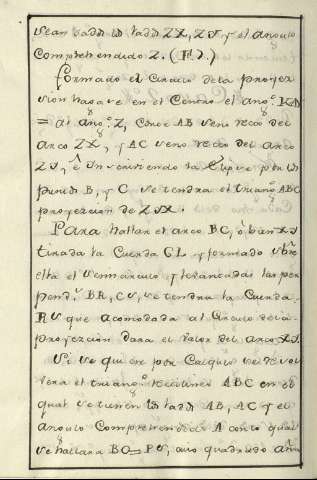 sean dados los lados ZX, ZS y el angulo
comprehendido Z. (F. 7.)
Formado el Circulo dela proyec
sion hagase en el Centro el ang.º
= al ang.º Z, conce AB seno recto del
arco ZX, y AC seno recto del arco
ZS, è inscriviendo la Elipse por los
puntos B, y C se tendra el triang.º ABC
proyeccion de ZSX.
Para hallar el arco BC, ò bien XS
tirada la Cuerda GL y formado sobre
ella el semicirculo y levantadas las per
pend.s BR, CV, se tendra la Cuerda
RV que acomodada al Circulo dela
proyeccion dara el valor del arco XS.
Si se quiere por Calculo se resol
vera el triang.º rectilineo ABC en el
qual se tienen los lados AB, AC y el
angulo Comprehendido A conlo qual
se hallara BC = , cuio quadrado